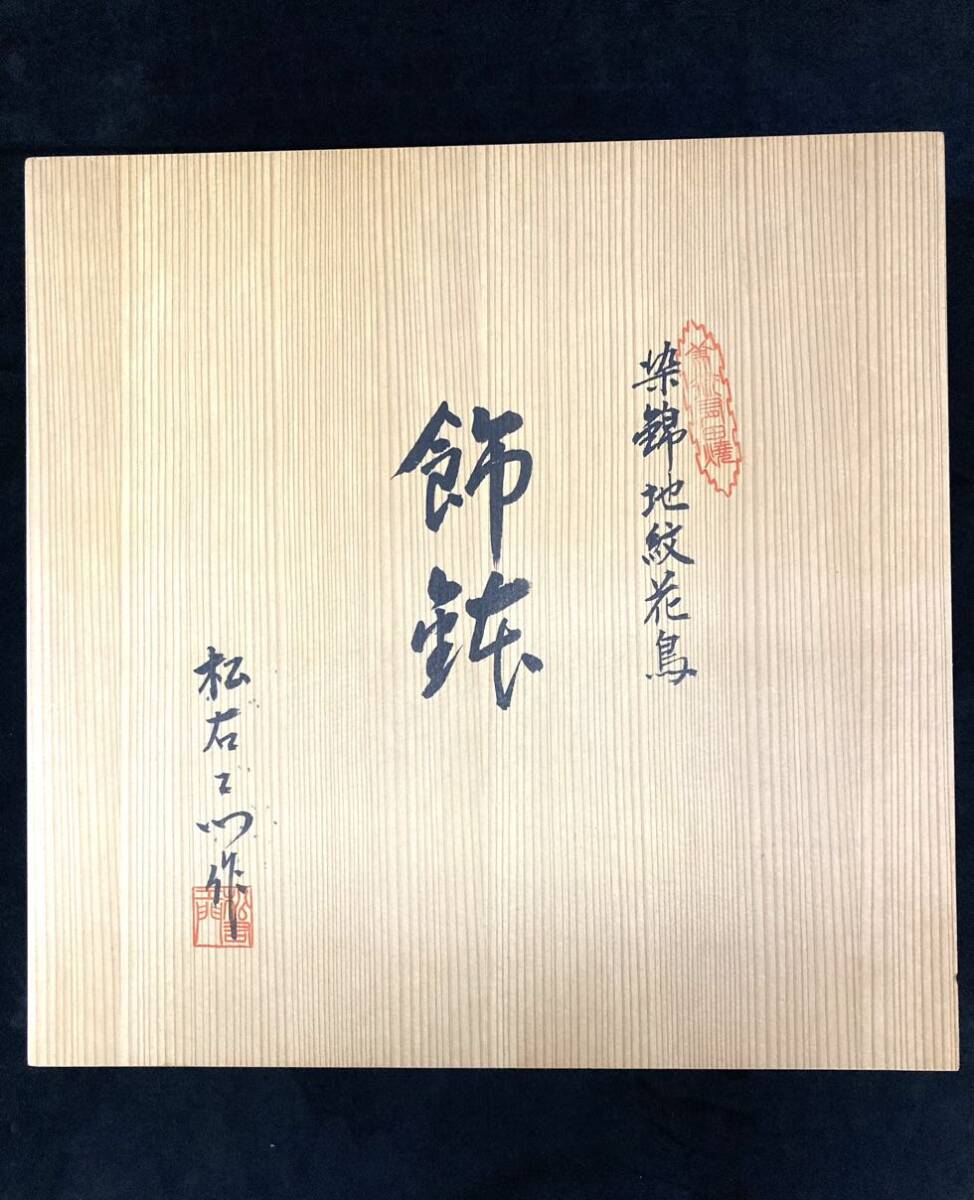 染錦地紋花鳥
飾鉢
松右ヱ門作